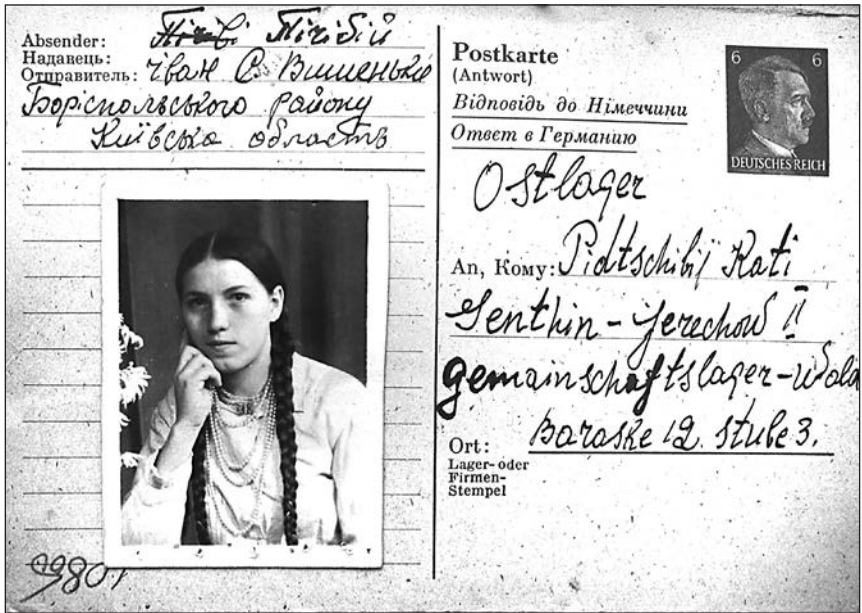 Absender:
Надавець:
Отправитель: Іван С. Вишеньки
Боріспольського району
Київська область
Postkarte
(Antwort)
Відповідь до Німеччини
Ответ в Германию
6 6
DEUTSCHES REICH
Ostlager
An, Кому: Pidtschibij Kati
Genthin - Jerechow II
gemainschaftslager - Wald
Ort: Baraske 12. Stube 3.
Lager- oder
Firmen-
Stempel